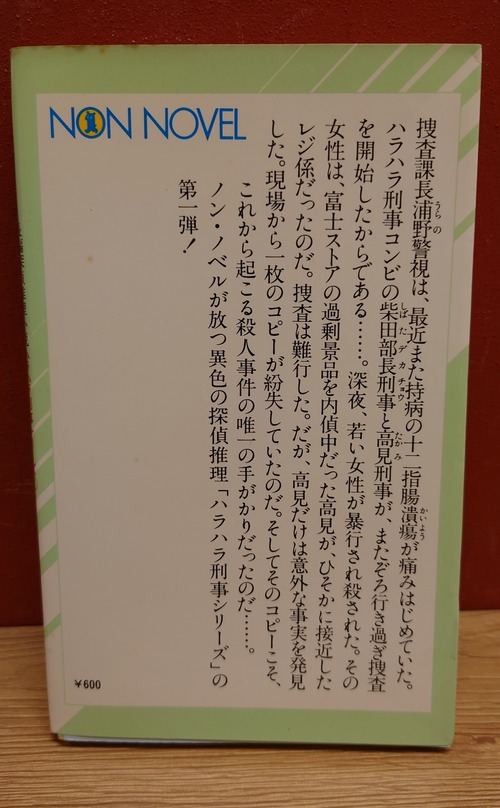 NON NOVEL
捜査課長浦野警視は、最近また持病の十二指腸潰瘍が痛みはじめていた。
うらの
かいよう
ハラハラ刑事コンビの柴田部長刑事と高見刑事が、またぞろ行き過ぎ捜査
しばたデカチョウ
たかみ
を開始したからである……。深夜、若い女性が暴行され殺された。その
女性は、富士ストアの過剰景品を内偵中だった高見が、ひそかに接近した
レジ係だったのだ。捜査は難行した。だが、高見だけは意外な事実を発見
した。現場から一枚のコピーが紛失していたのだ。そしてそのコピーこそ、
これから起こる殺人事件の唯一の手がかりだったのだ……。
ノン・ノベルが放つ異色の探偵推理「ハラハラ刑事シリーズ」の
第一弾！
¥600